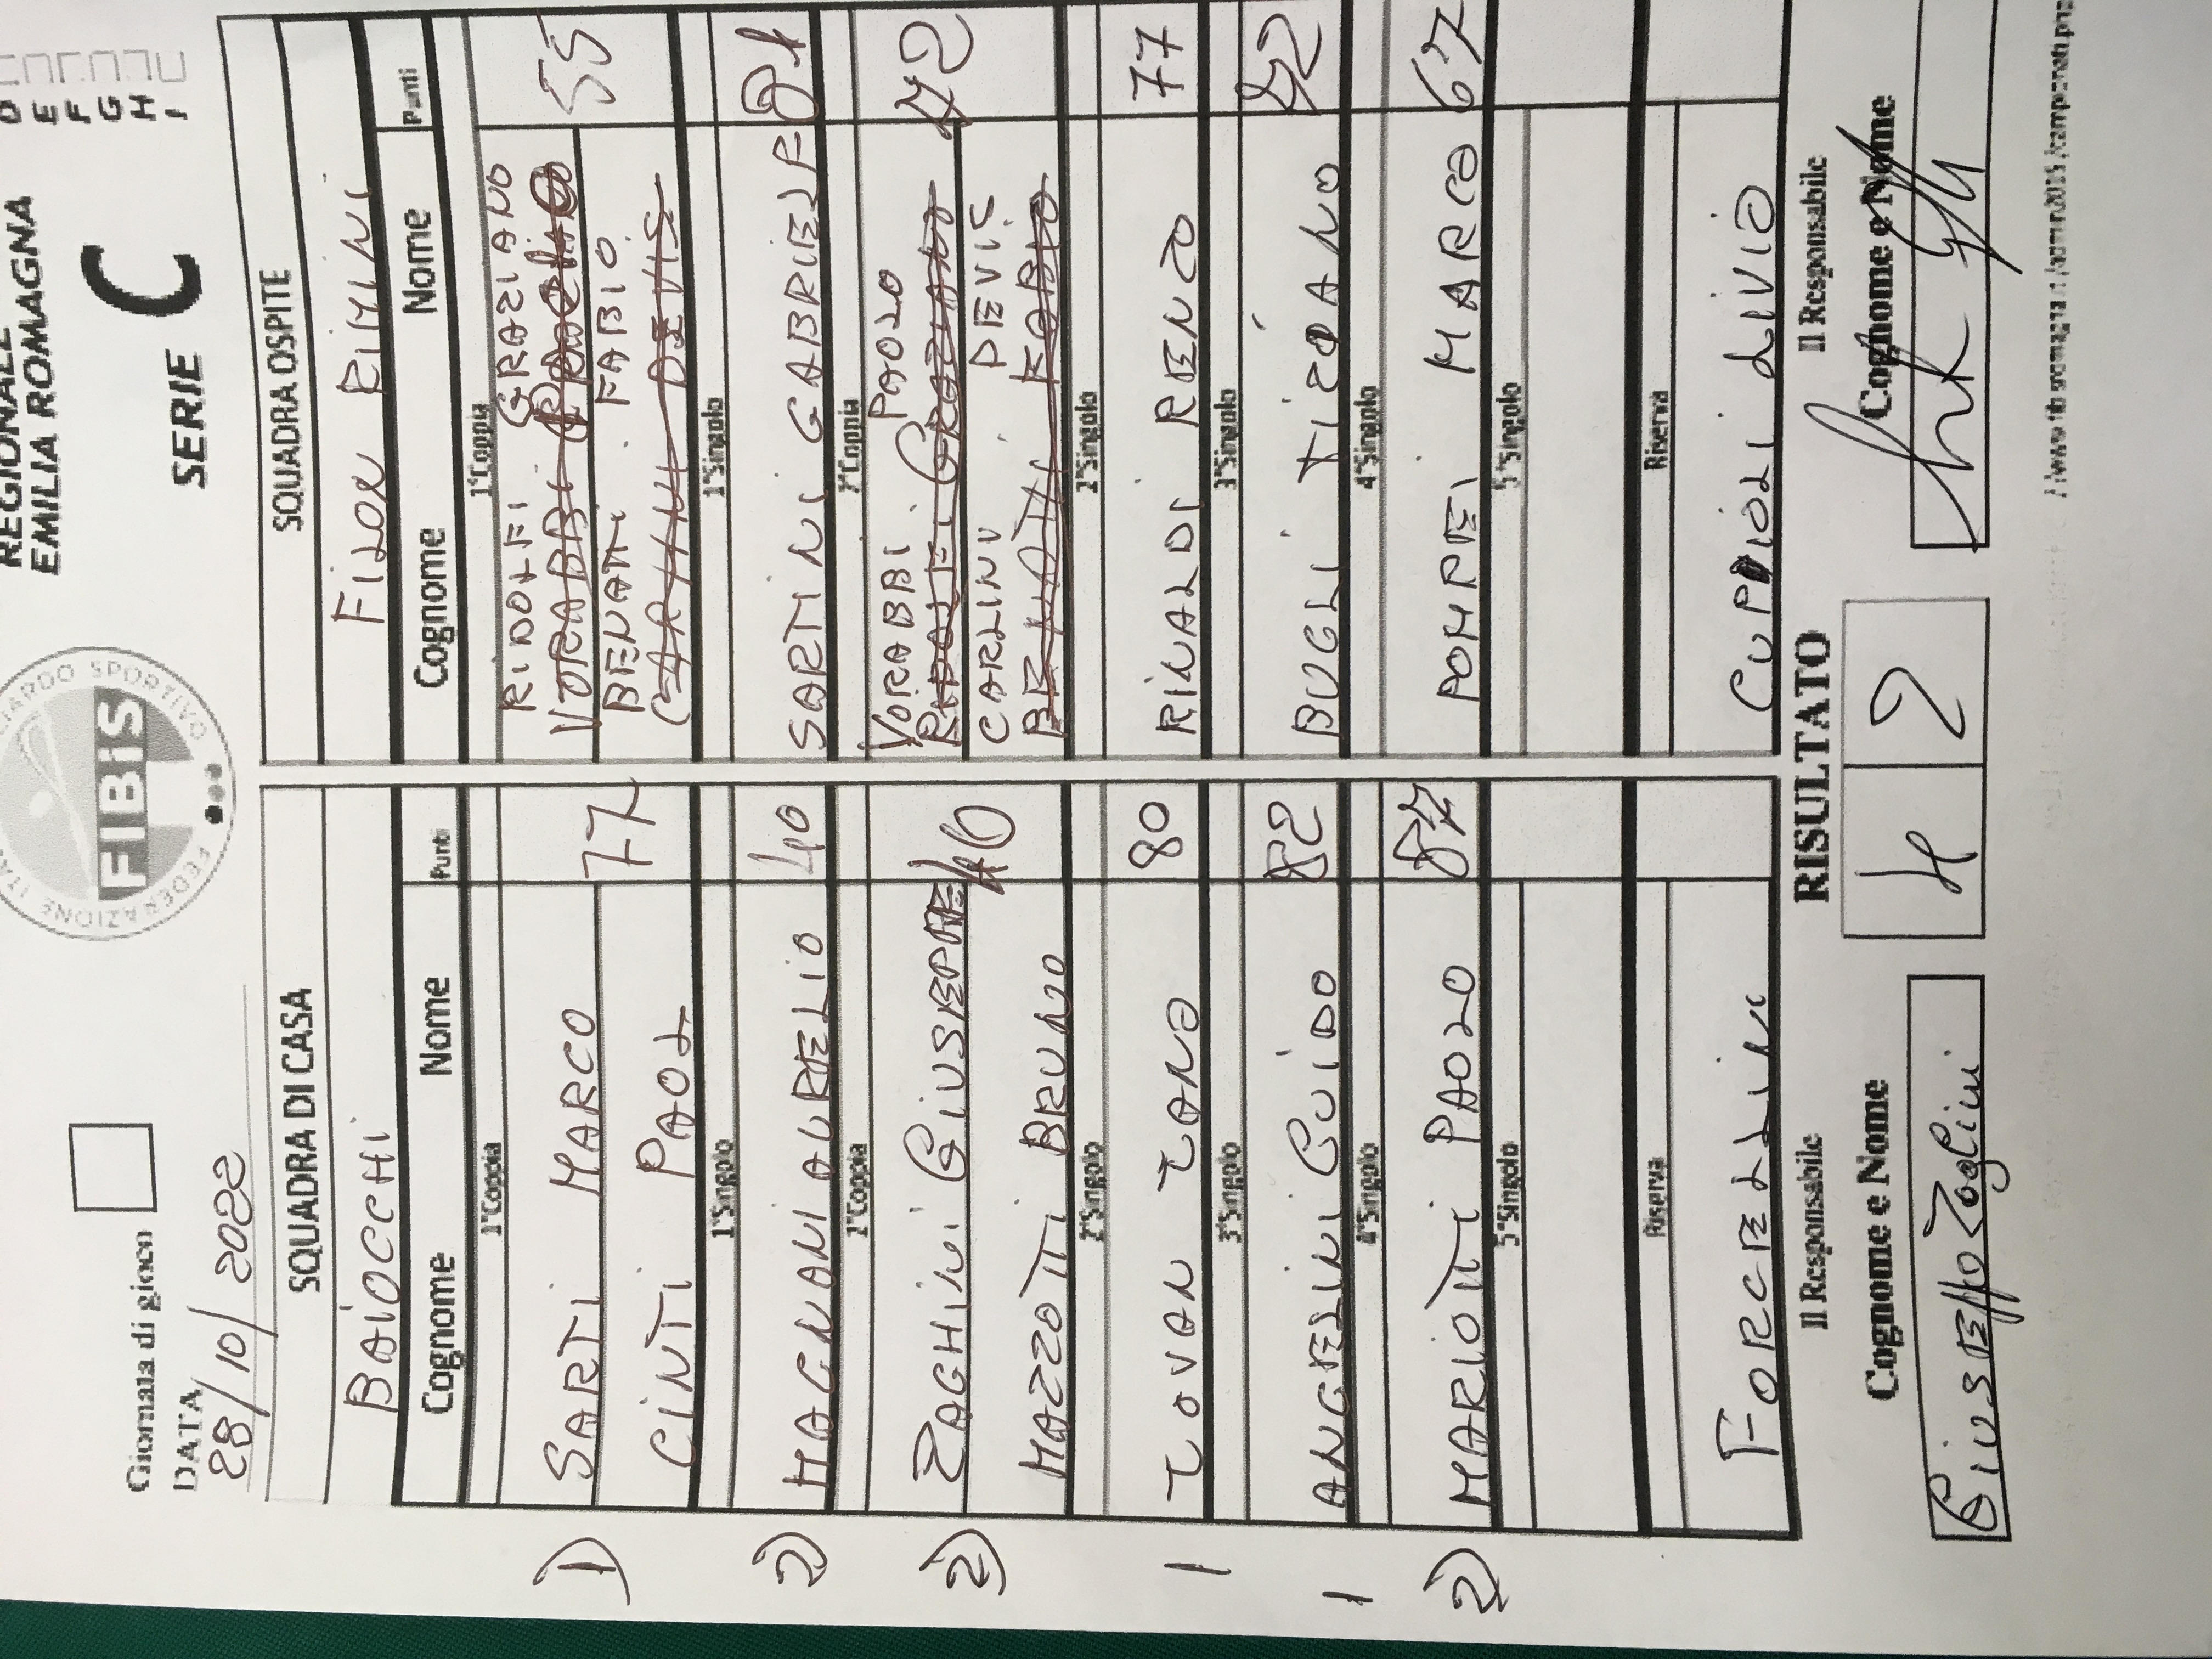 REGIONALE
EMILIA ROMAGNA
SERIE C
D
E
F
G
H
I
FEDERAZIONE ITA
LIARDO SPORTIVO
FIBiS
Giornata di gioco
DATA
28/10/2022
SQUADRA DI CASA
BAIOCCHI
Cognome Nome Punti
1°Coppia
SARTI MARCO
CINTI PAOL
77
1°Singolo
MAGNANI AURELIO 40
2°Coppia
ZAGHINI GIUSEPPE
MAZZOTTI BRUNO
2°Singolo
TOVAN TOANO 80
3°Singolo
ANGELINI GUIDO 82
4°Singolo
MARIOTTI PAOLO
5°Singolo
Riserva
FORCELLINI
SQUADRA OSPITE
FILOR RIMINI
Cognome Nome Punti
1°Coppia
RIDOLFI GRAZIANO
VORABBI
BENATTI FABIO
CARLINI DEVIS
55
1°Singolo
SARTINI GABRIELE 81
2°Coppia
VORABBI PAOLO
RIDOLFI GRAZIANO
CARLINI DEVIS
BENATTI FABIO
42
2°Singolo
RINALDI RENZO 77
3°Singolo
BUGLI TIZIANO
4°Singolo
POMPEI MARCO 67
5°Singolo
Riserva
CUPPIOLI LIVIO
1)
2)
2)
1
1
2)
RISULTATO
4 2
Il Responsabile
Cognome e Nome
Giuseppe Zaghini
Il Responsabile
Cognome e Nome